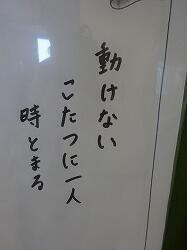 動けない
こたつに一人
時とまる